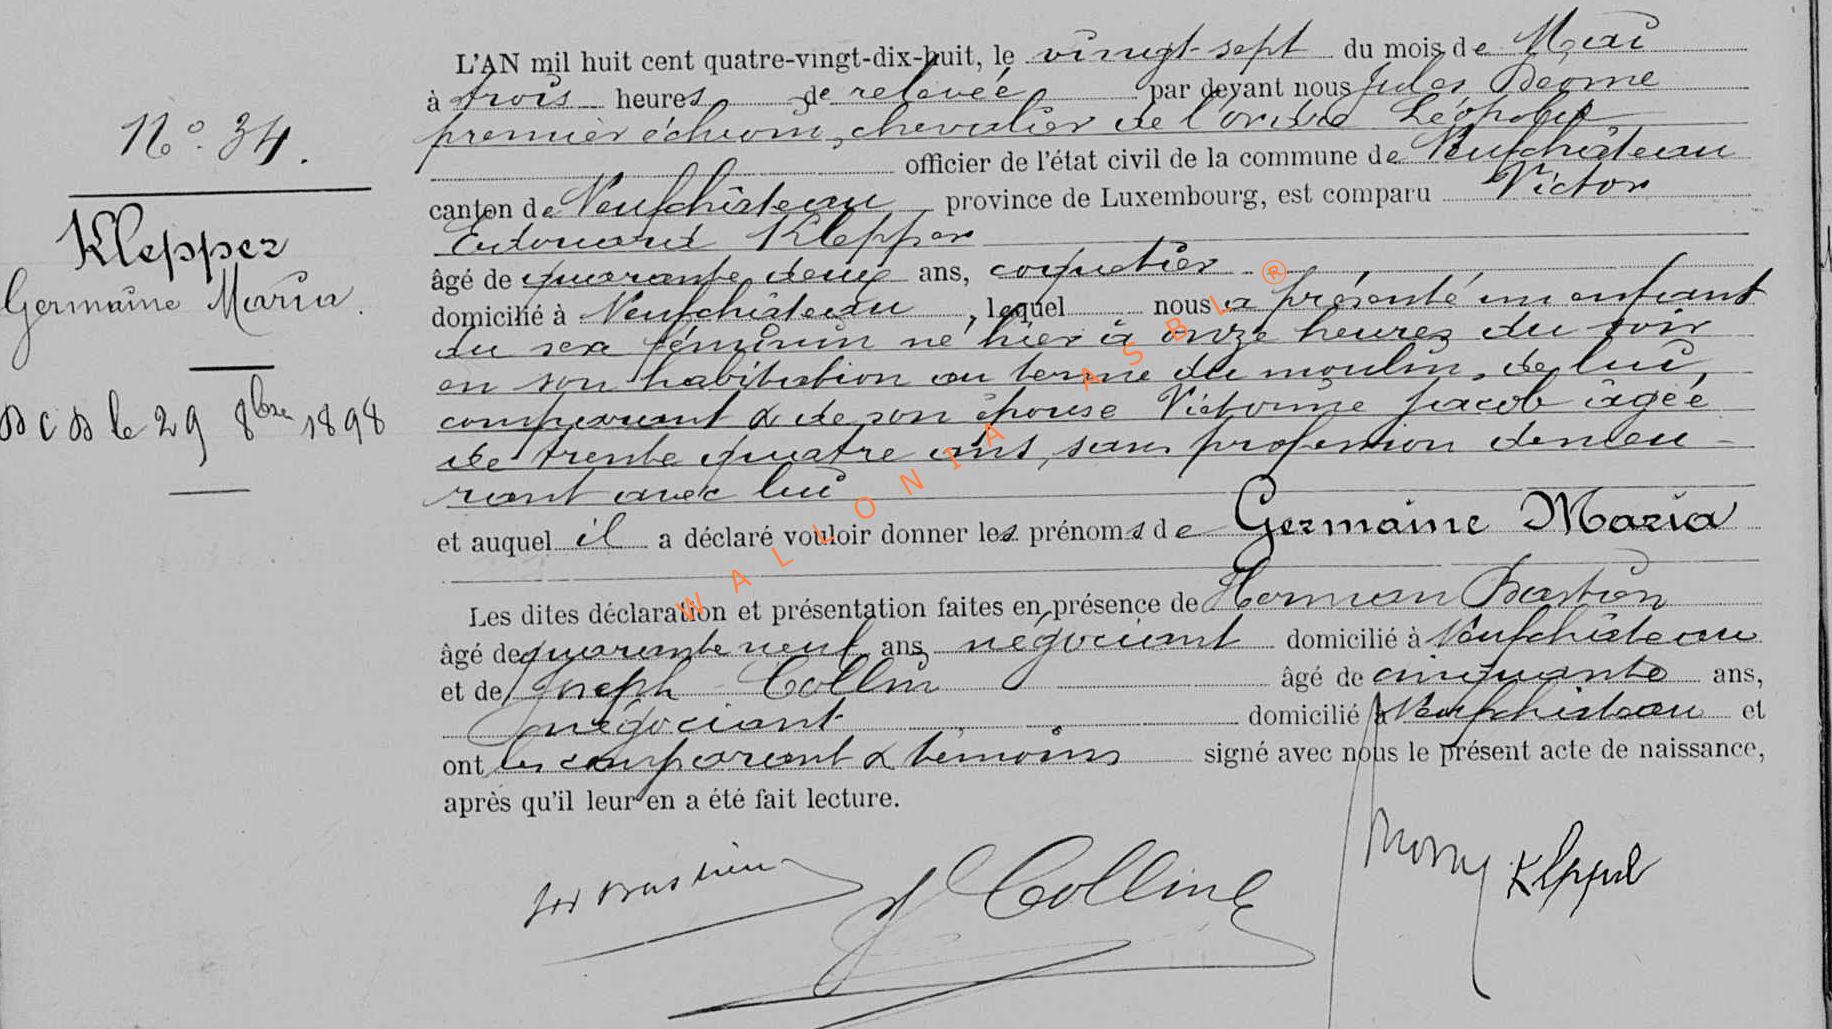 N° 34.
Klepper
Germaine Maria.
DCD le 29 8bre 1898
L'AN mil huit cent quatre-vingt-dix-huit, le vingt-sept du mois de Mai
à trois heures de relevée par devant nous Jules
premier échevin, chevalier de l'ordre Léopold
officier de l'état civil de la commune de Neufchâteau
canton de Neufchâteau province de Luxembourg, est comparu Victor
Edouard Klepper
âgé de quarante deux ans, coquetier
domicilié à Neufchâteau, lequel nous a présenté un enfant
du sexe féminin né hier à onze heures du soir
en son habitation au terme du moulin, de lui,
comparant & de son épouse Victorine Jacob âgée
de trente quatre ans, sans profession demeu-
rant avec lui
et auquel il a déclaré vouloir donner les prénoms de Germaine Maria
Les dites déclaration et présentation faites en présence de Herman Bastien
âgé de quarante neuf ans négociant domicilié à Neufchâteau
et de Joseph Collin âgé de cinquante ans,
négociant domicilié à Neufchâteau et
ont les comparant & témoins signé avec nous le présent acte de naissance,
après qu'il leur en a été fait lecture.
Bastien J Collin Klepper
WALLONIA ASBL ®